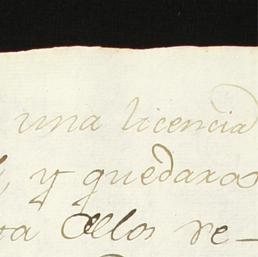 una licencia
, y quedaras
ellos re-